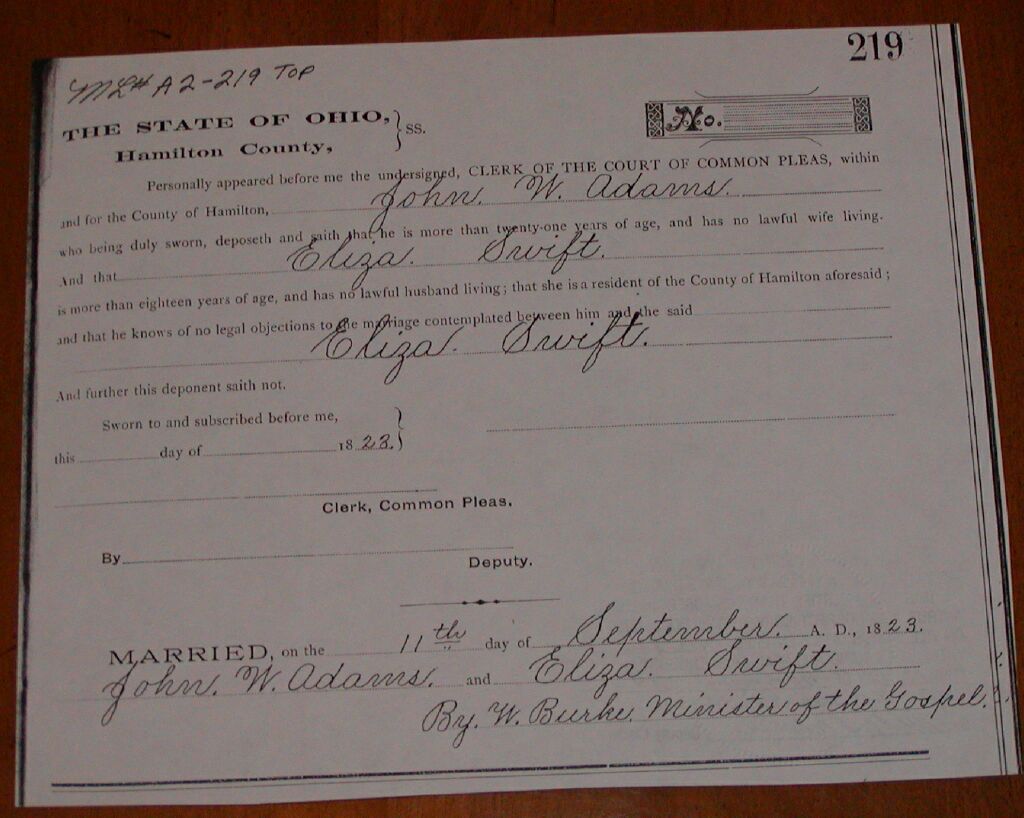 219
ML# A2-219 Top
THE STATE OF OHIO, } SS.
Hamilton County,
No.
Personally appeared before me the undersigned, CLERK OF THE COURT OF COMMON PLEAS, within
and for the County of Hamilton, John. W. Adams.
who being duly sworn, deposeth and saith that he is more than twenty-one years of age, and has no lawful wife living.
And that Eliza. Swift.
is more than eighteen years of age, and has no lawful husband living; that she is a resident of the County of Hamilton aforesaid;
and that he knows of no legal objections to the marriage contemplated between him and the said
Eliza. Swift.
And further this deponent saith not.
Sworn to and subscribed before me,
this day of 1823. }
Clerk, Common Pleas.
By
Deputy.
MARRIED, on the 11th day of September. A. D., 1823.
John. W. Adams. and Eliza. Swift.
By. W. Burke. Minister of the Gospel.